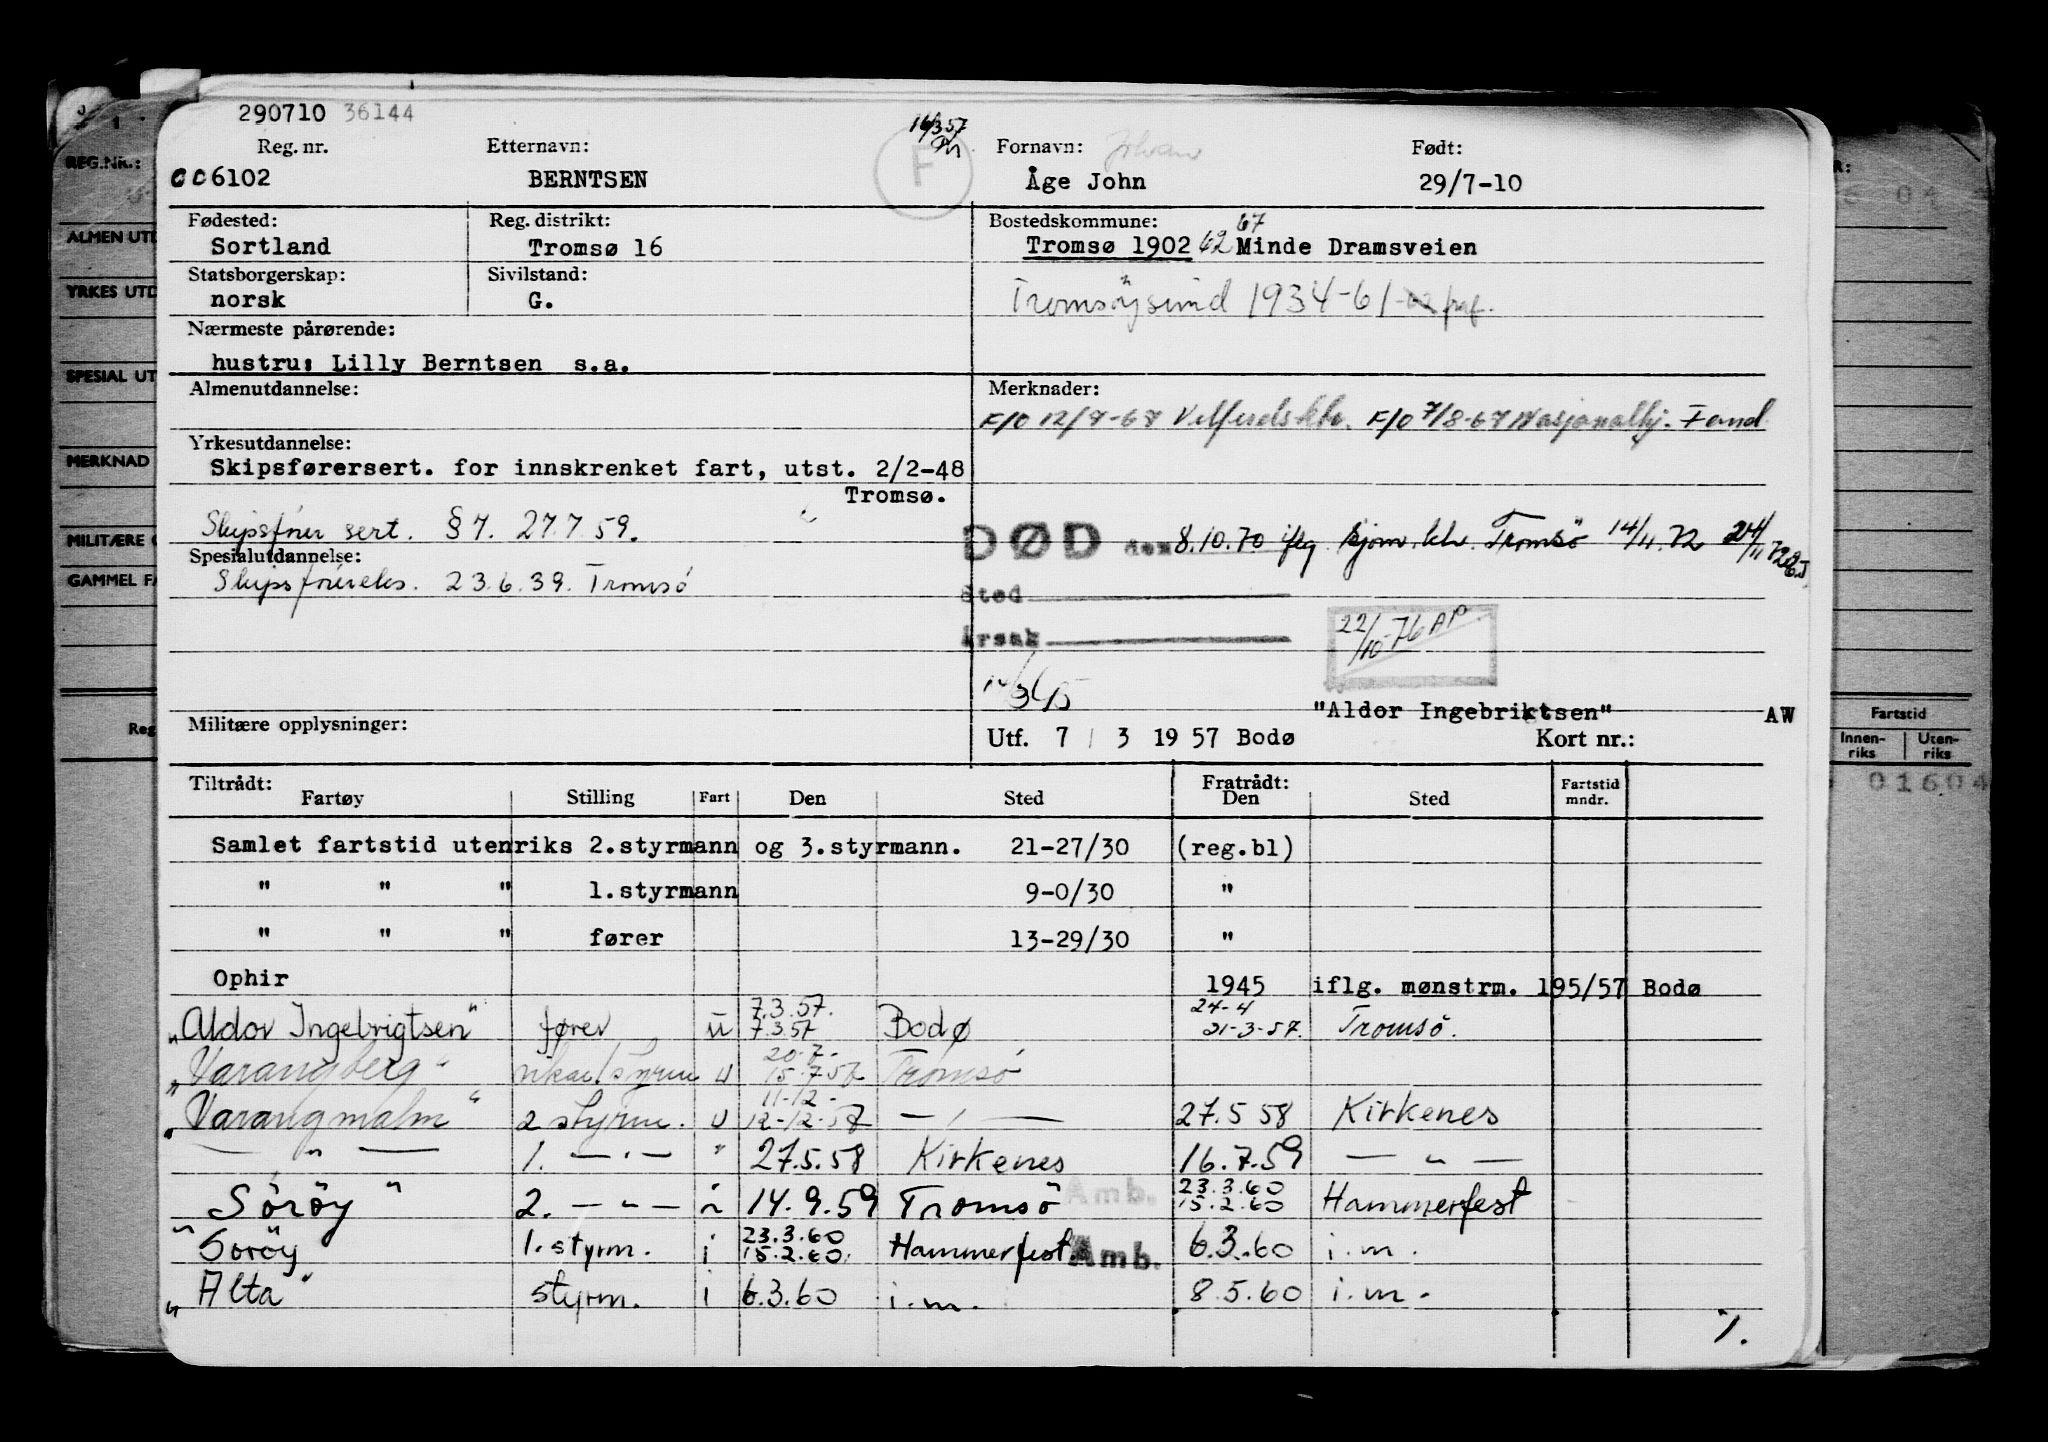 290710 36144
Reg. nr. Etternavn: 16/3 57 Fornavn: Johan Født:
006102 BERNTSEN F Åge John 29/7-10
Fødested: Reg. distrikt: Bostedskommune: 67
Sortland Tromsø 16 Tromsø 1902 62 Minde Dramsveien
Statsborgerskap: Sivilstand:
norsk G. Tromsöysund 1934-61
Nærmeste pårørende:
hustru: Lilly Berntsen s.a.
Almenutdannelse: Merknader:
F/O 12/7-67 Velferdsktr. F/O 7/8-67 Nasjonalhj. Fond
Yrkesutdannelse:
Skipsførersert. for innskrenket fart, utst. 2/2-48
Tromsø.
Skipsfører sert. § 7. 27.7.59.
DØD den 8.10.70 iflg. Sjøm.ktr. Tromsö 14/11.72 24/11 72
Spesialutdannelse:
Skipsførereks. 23.6.39. Tromsö
Sted
Årsak
22/10-76 AP
"Aldor Ingebriktsen" AW
Militære opplysninger: Utf. 7 / 3 19 57 Bodø Kort nr.:
Tiltrådt: Fratrådt: Fartstid
Fartøy Stilling Fart Den Sted Den Sted mndr.
Samlet fartstid utenriks 2.styrmann og 3.styrmann. 21-27/30 (reg.bl)
" " " 1.styrmann 9-0/30 "
" " " fører 13-29/30 "
Ophir 1945 iflg. mønstrm. 195/57 Bodø
7.3.57. 24-4
"Aldor Ingebrigtsen" fører u 7.3.57 Bodø 21-3-57. Tromsö.
20.7.
"Varangberg" vikar/styrm u 15.7.57 Tromsö
11-12-
"Varangmalm" 2 styrm. u 12-12-57 — " — 27.5 58 Kirkenes
— " — 1. — " — " 27.5.58 Kirkenes 16.7.59 — " —
23.3.60
Söröy" 2. — " — i 14.9.59 Tromsö Amb. 15.2.60 Hammerfest
23.3.60
"Söröy 1. styrm. i 15.2.60. Hammerfest Amb. 6.3.60 i.m.
"Alta" styrm. i 6.3.60 i.m. 8.5.60 i.m.
REG.NR.:
ALMEN UTD
YRKES UTD
SPESIAL UT
MERKNAD
MILITÆRE
GAMMEL FA
Reg
Fartstid
Innen-riks Uten-riks
01604